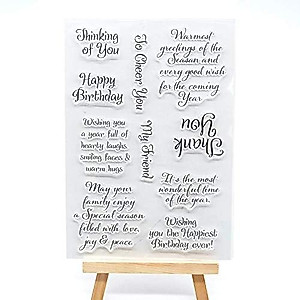 Thinking
of You
Happy
Birthday
Wishing you
a year full of
hearty laughs,
smiling faces &
warm hugs.
May your
family enjoy
a Special season
filled with love,
joy & peace.
To Cheer You
My Friend
Warmest
greetings of the
Season and
every good wish
for the coming
Year
Thank
You
It's the most
wonderful time
of the year.
Wishing
you the Happiest
Birthday ever!